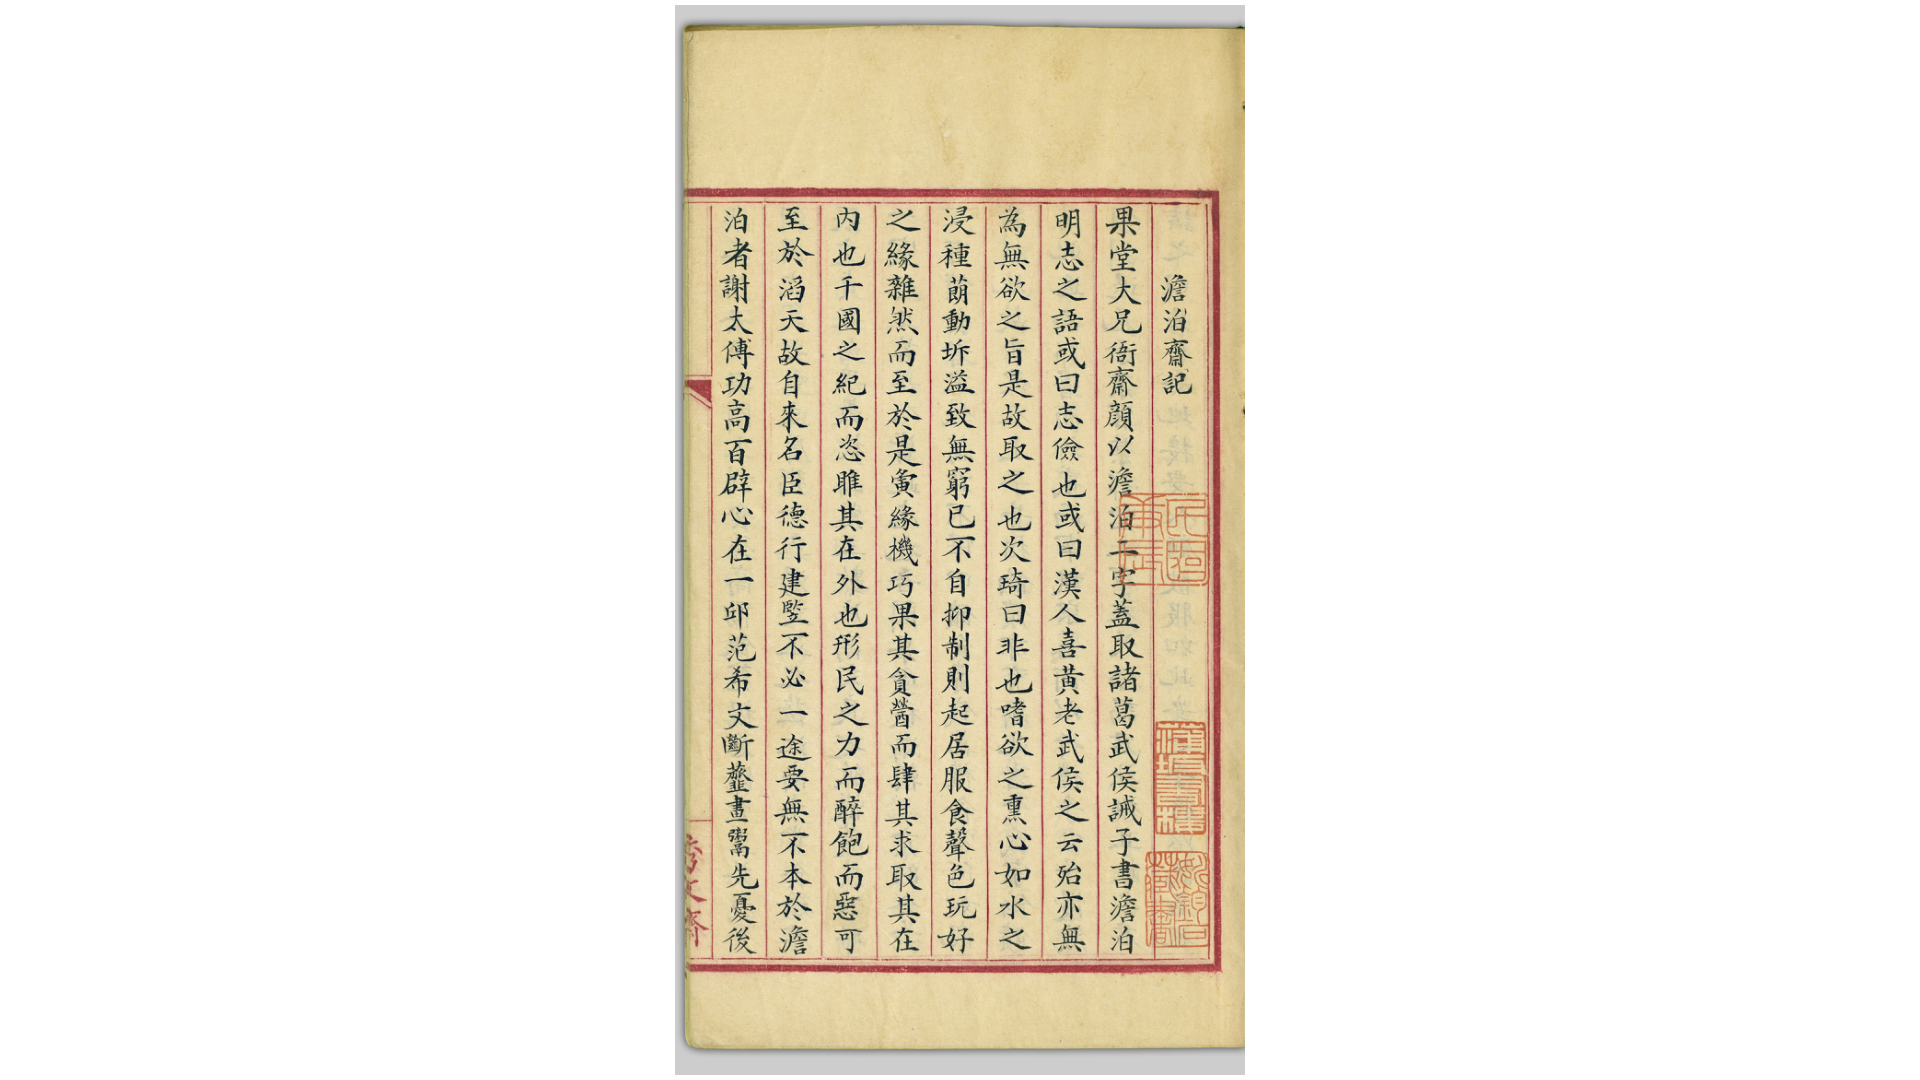 澹泊齋記
果堂大兄衙齋顏以澹泊二字蓋取諸葛武侯誡子書澹泊
明志之語或曰志儉也或曰漢人喜黃老武侯之云殆亦無
為無欲之旨是故取之也次琦曰非也嗜欲之熏心如水之
浸種萠動坼溢致無窮已不自抑制則起居服食聲色玩好
之緣雜然而至於是寅緣機巧果其貪謍而肆其求取其在
内也千國之紀而恣睢其在外也形民之力而醉飽而惡可
至於滔天故自來名臣德行建竪不必一途要無不本於澹
泊者謝太傅功高百辟心在一邱范希文斷虀畫鬻先憂後
秀文齋
蒲坂書樓